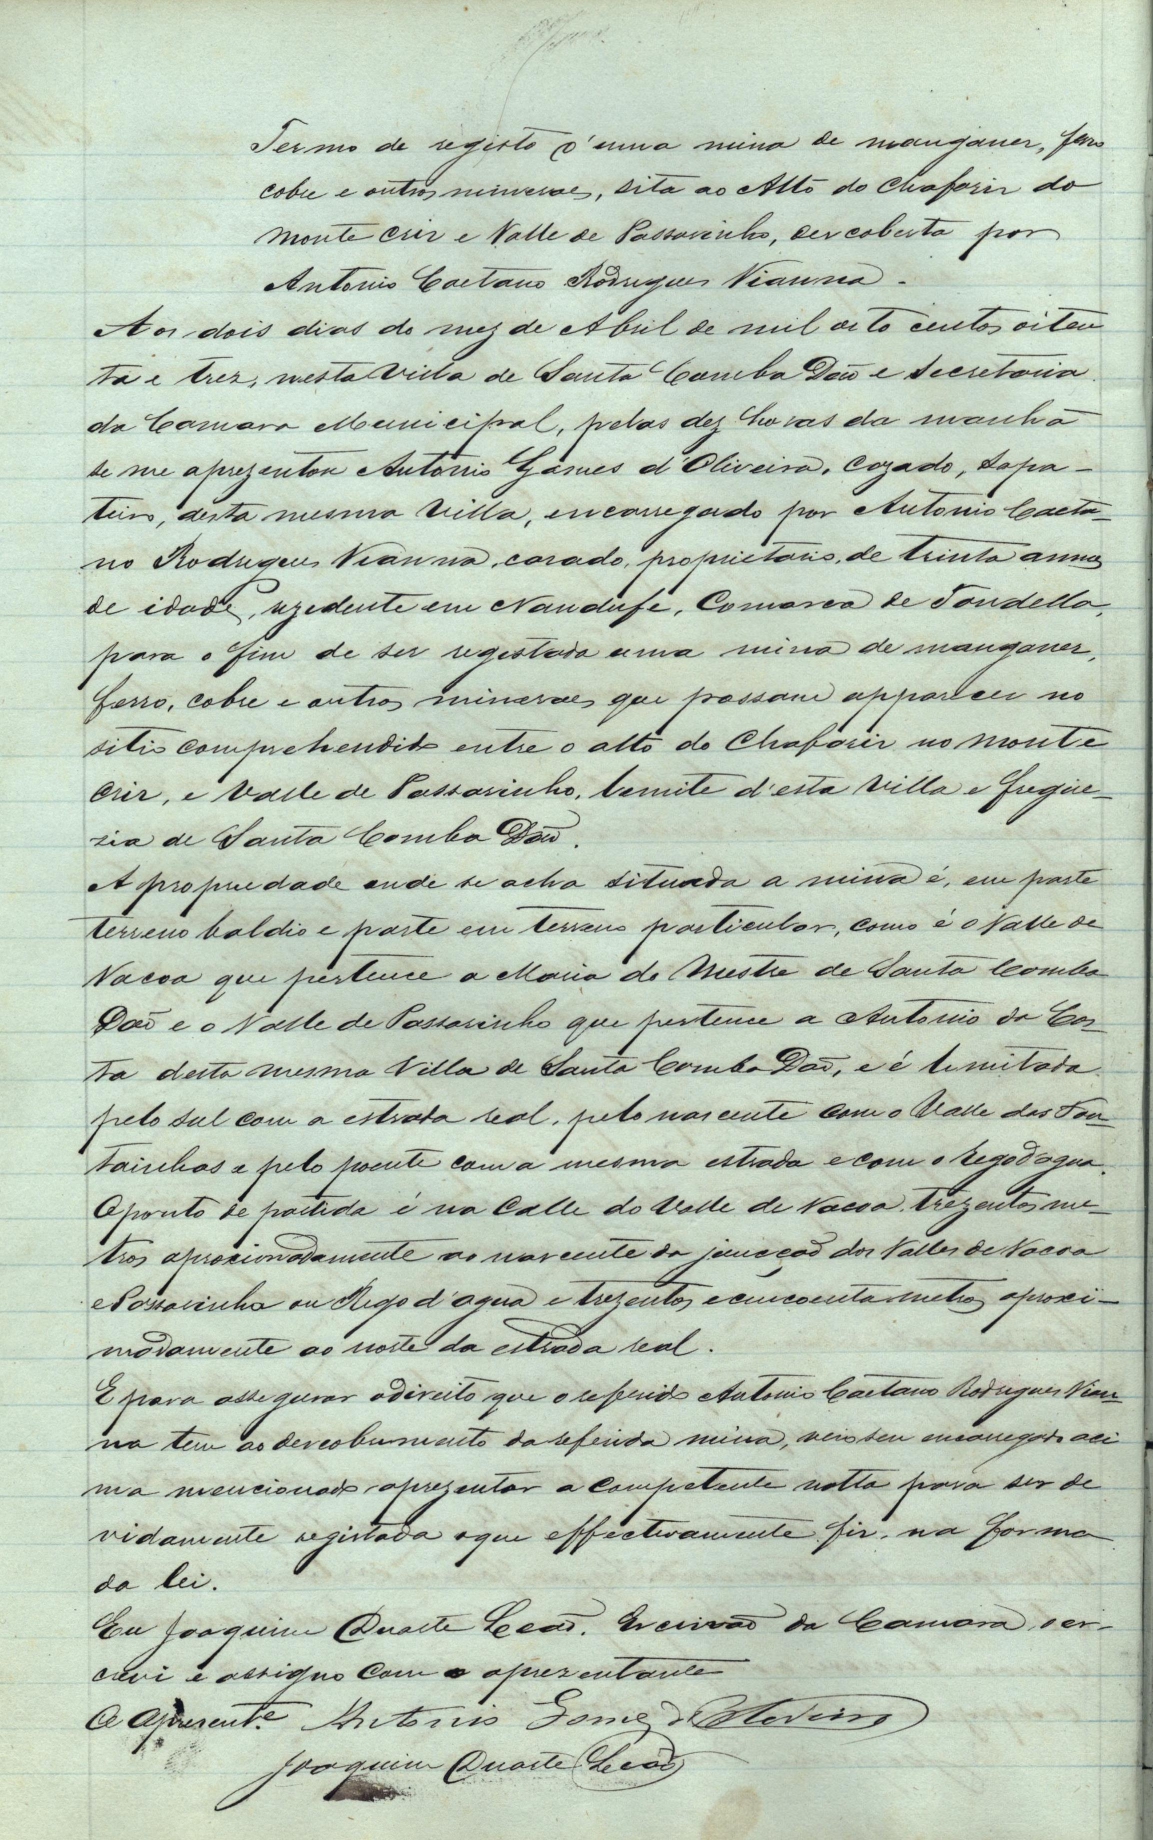 Termo de registo d'uma mina de manganez, ferro
cobre e outros mineraes, sita ao Alto do Chafariz do
Monte Criz e Valle de Passarinho, descoberta por
Antonio Caetano Rodrigues Vianna.
Aos dois dias do mez de Abril de mil oito centos oiten
ta e trez, nesta Villa de Santa Comba Dão e Secretaria
da Camara Municipal, pelas dez horas da manhã
se me aprezentou Antonio Gomes d'Oliveira, cazado, sapa-
teiro, desta mesma Villa, encarregado por Antonio Caeta-
no Rodrigues Vianna, casado, proprietario, de trinta annos
de idade, rezedente em Nandufe, Comarca de Tondella,
para o fim de ser registada uma mina de manganez,
ferro, cobre e outros mineraes que possam apparecer no
sitio comprehendido entre o alto do Chafariz no Monte
Criz, e Valle de Passarinho, lemite d'esta Villa e fregue-
zia de Santa Comba Dão.
A propriedade onde se acha situada a mina é, em parte
terreno baldio e parte em terreno particular, como é o Valle de
Vacoa que pertence a Maria do Mestre de Santa Comba
Dão e o Valle de Passarinho que pertence a Antonio da Cos-
ta desta mesma Villa de Santa Comba Dão, e é limitada
pelo sul com a estrada real, pelo nascente com o Valle das Fon-
tainhas e pelo poente com a mesma estrada e com o Rego d'agua.
O ponto de partida é na Calle do Valle de Vacoa, trezentos me-
tros aproximadamente ao nascente da juncção dos Valles de Vacoa
e Passarinho ou Rego d'agua e trezentos e cincoenta metros aproxi-
madamente ao norte da estrada real.
E para assegurar o direito que o referido Antonio Caetano Rodrigues Vian-
na tem ao descobrimento da referida mina, veio seu encarregado aci
ma mencionado aprezentar a competente notta para ser de
vidamente registada o que effectivamente fiz, na forma
da lei.
Eu Joaquim Duarte Leão, Escrivão da Camara, o es-
crevi e assigno com o aprezentante
O Apresent.e Antonio Gomes d'Oliveira
Joaquim Duarte Leão